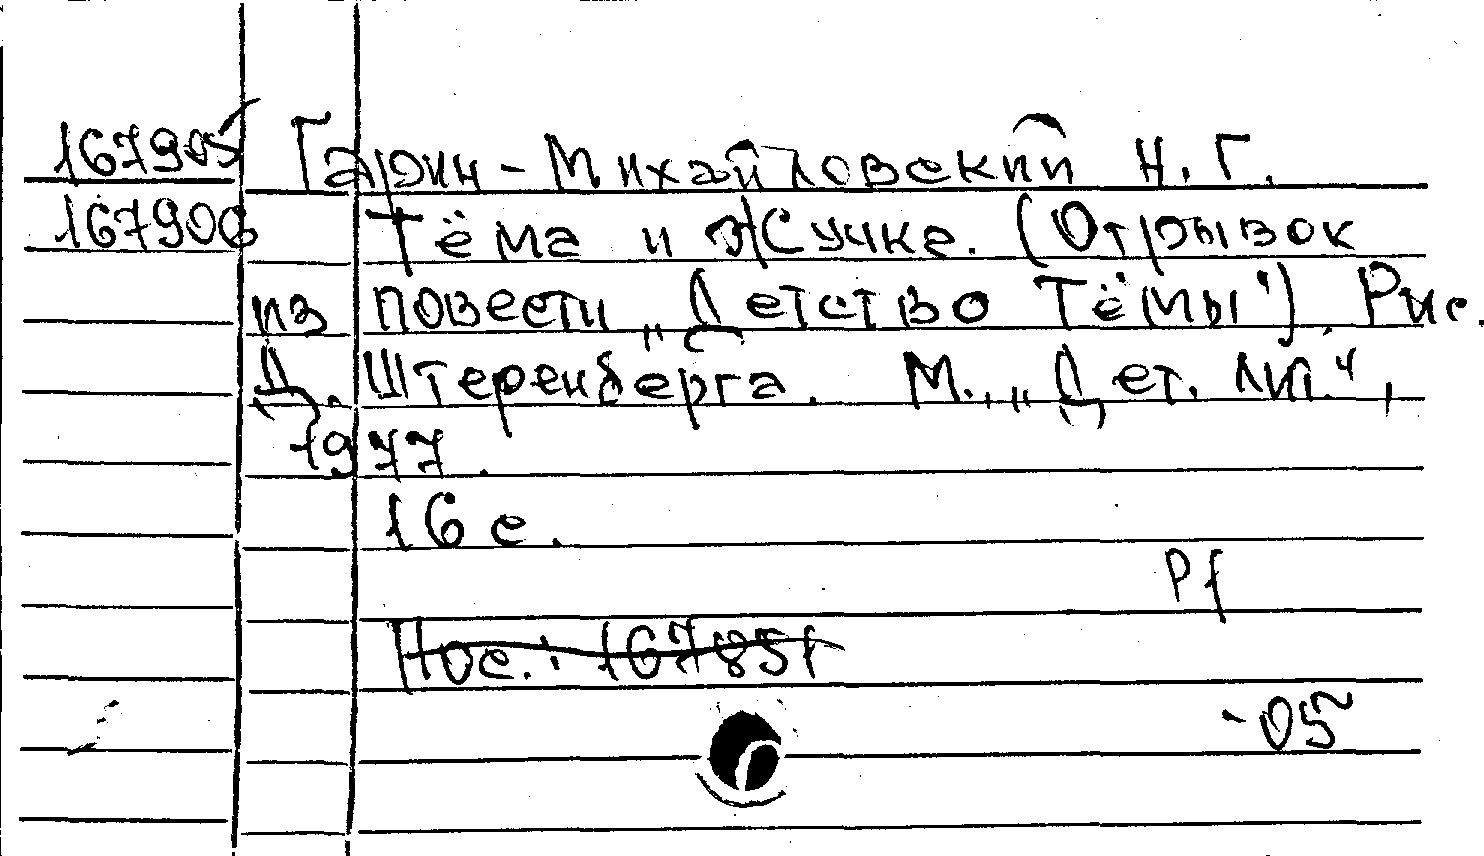 167905 Гарин-Михайловский Н.Г.
167906 Тёма и Жучка. (Отрывок
из повести „Детство Тёмы"). Рис.
Д. Штеренберга. М., „Дет. лит.",
1977.
16 с.
Pf
Пос.: 167851
-05